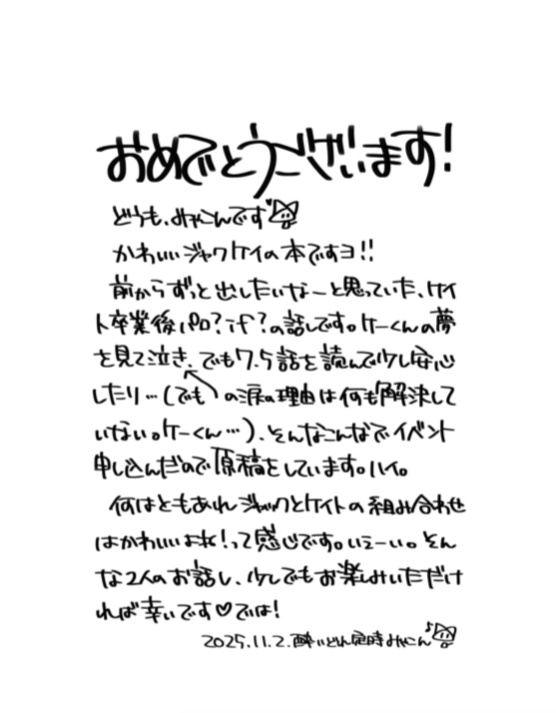 おめでとうございます!
どうも、みゃこんです
かわいいジャクケイの本ですヨ!!
前からずっと出したいなーと思っていた、ケイ
ト卒業後パロ?if?の話しです。けーくんの夢
を見て泣き、でも7.5話を読んで少し安心
したり…(でも の涙の理由は何も解決して
いない。けーくん…)、そんなこんなでイベント
申し込んだので原稿をしています。ハイ。
何はともあれジャックとケイトの組み合わせ
はかわいいよね!って感じです。いえーい。そん
な2人のお話し、少しでもお楽しみいただけ
れば幸いです♡では!
2025.11.2.酔いどれ 時みゃこん♪